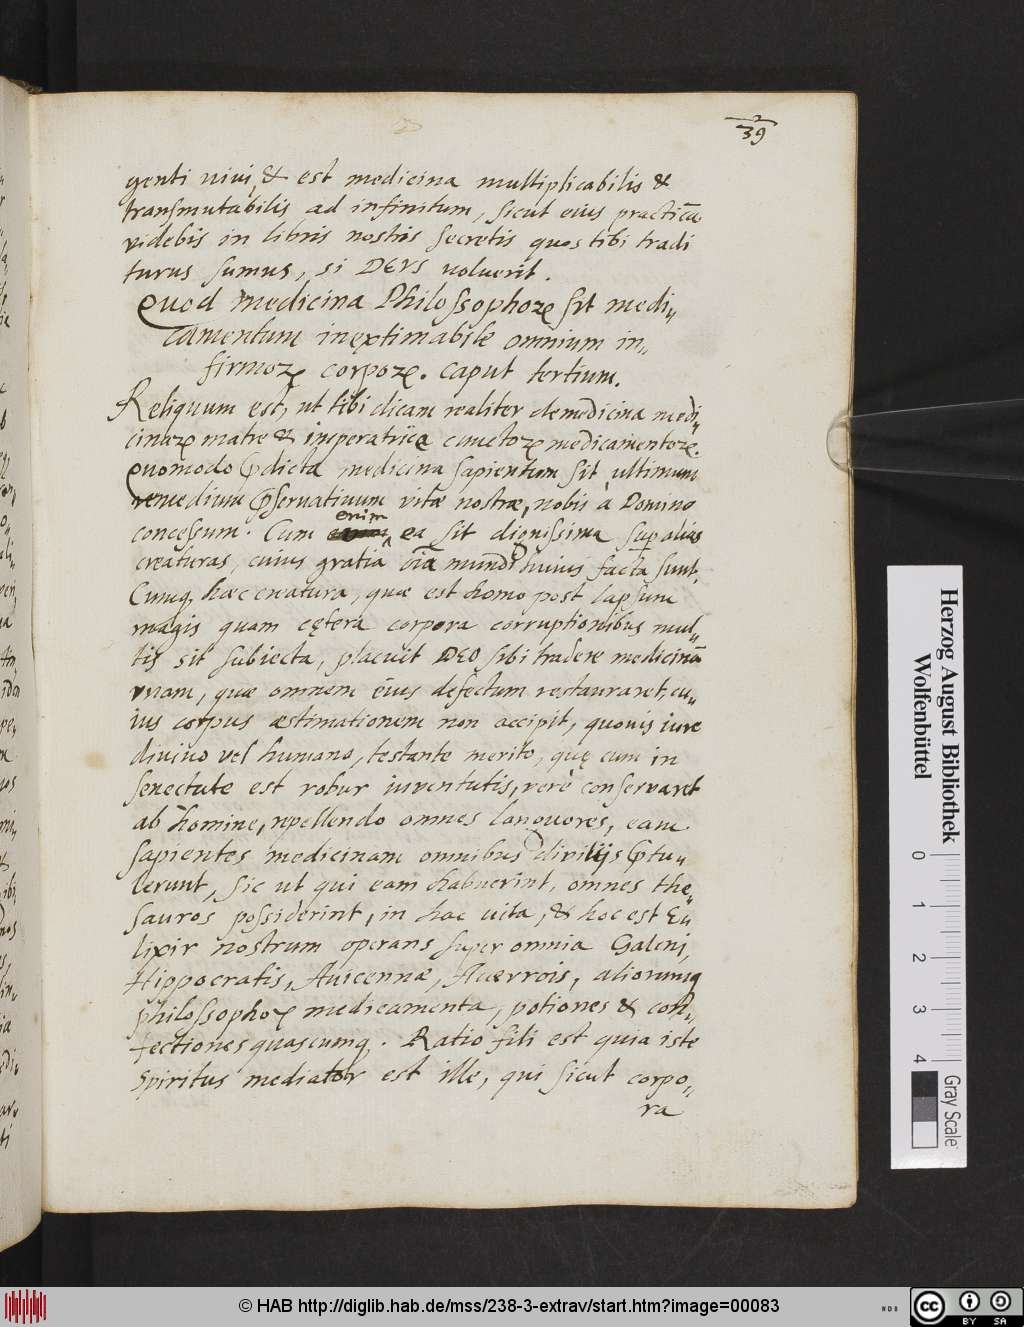 39
genti vivi, & est medicina multiplicabilis &
transmutabilis ad infinitum, sicut eius practicā
videbis in libris nostris secretis quos tibi tradi
turus sumus, si DEVS voluerit.
Quod medicina Philossophoꝝ sit medi„
camentum inextimabile omnium in„
firmoꝝ corpoꝝ. Caput tertium.
Reliquum est, ut tibi dicam realiter de medicina medi„
cinaꝝ matre & imperatrice cunctoꝝ medicamentoꝝ.
Quomodo p̄dicta medicina sapientum sit ultimum
remedium p̄servativum vitæ nostræ, nobis à Domino
concessum. Cum enim ea sit dignissima sup alias
creaturas, cuius gratia oīa mundi huius facta sunt,
Cumq, hæc creatura, quæ est homo post lapsum
magis quam cętera corpora corruptionibus mul„
tis sit subiecta, placuit DEO sibi tradere medicinā
vnam, quæ omnem eius defectum restauraret, cu„
ius corpus æstimationem non accipit, quovis iure
divino vel humano, testante merito, quę cum in
senectute est robur iuventutis, verè conservaret
ab homine, repellendo omnes languores, eam
sapientes medicinam omnibus divitijs p̄tu„
lerunt, sic ut qui eam habuerint, omnes the„
sauros possiderint, in hac vita, & hoc est Eu„
lixir nostrum operans super omnia Galeni,
Hippocratis, Avicennæ, Averrois, aliorumq
philossophoꝝ medicamenta, potiones & con„
fectiones quascumq. Ratio fili est quia iste
spiritus mediator est ille, qui sicut corpo„
ra
Herzog August Bibliothek
Wolfenbüttel
0 1 2 3 4
Gray Scale
© HAB http://diglib.hab.de/mss/238-3-extrav/start.htm?image=00083
cc BY SA